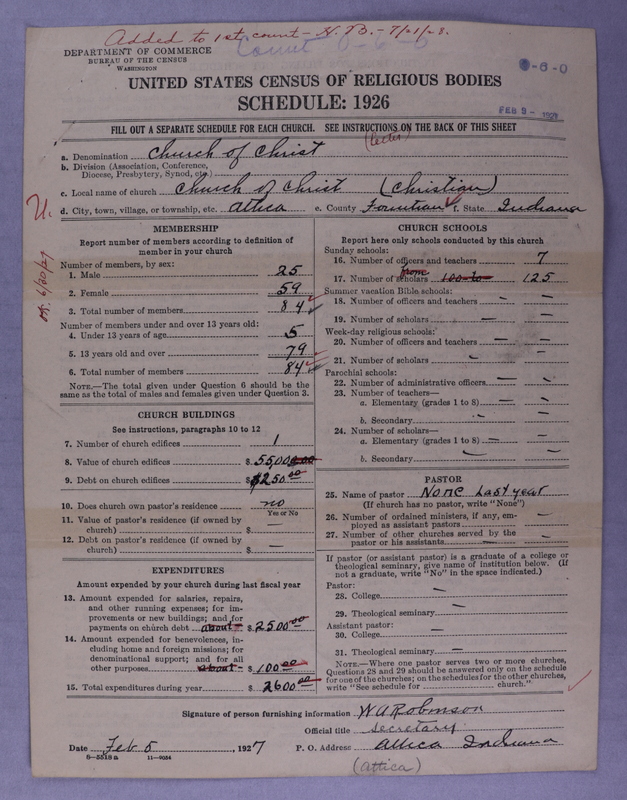 Added to 1st count - H. B. - 7/21/28.
Count 0-6-0
DEPARTMENT OF COMMERCE
BUREAU OF THE CENSUS
WASHINGTON
0-6-0
UNITED STATES CENSUS OF RELIGIOUS BODIES
SCHEDULE: 1926
FEB 9 - 1927
FILL OUT A SEPARATE SCHEDULE FOR EACH CHURCH. SEE INSTRUCTIONS ON THE BACK OF THIS SHEET
(letter)
a. Denomination Church of Christ
b. Division (Association, Conference, Diocese, Presbytery, Synod, etc.)
c. Local name of church Church of Christ (Christian)
U.
d. City, town, village, or township, etc. Attica e. County Fountian f. State Indiana
MEMBERSHIP
Report number of members according to definition of member in your church
Number of members, by sex:
1. Male 25
2. Female 59
3. Total number of members 84
Number of members under and over 13 years old:
4. Under 13 years of age 5
5. 13 years old and over 79
6. Total number of members 84
NOTE.—The total given under Question 6 should be the same as the total of males and females given under Question 3.
CHURCH BUILDINGS
See instructions, paragraphs 10 to 12
7. Number of church edifices 1
8. Value of church edifices $ 55,000.00
9. Debt on church edifices $ $1250.00
10. Does church own pastor's residence no
Yes or No
11. Value of pastor's residence (if owned by church) $ —
12. Debt on pastor's residence (if owned by church) $ —
EXPENDITURES
Amount expended by your church during last fiscal year
13. Amount expended for salaries, repairs, and other running expenses; for improvements or new buildings; and for payments on church debt about - $ 2500.00
14. Amount expended for benevolences, including home and foreign missions; for denominational support; and for all other purposes about - $ 100.00
15. Total expenditures during year $ 2600.00
CHURCH SCHOOLS
Report here only schools conducted by this church
Sunday schools:
16. Number of officers and teachers 7
from
17. Number of scholars 100 to 125
Summer vacation Bible schools:
18. Number of officers and teachers — —
19. Number of scholars — —
Week-day religious schools:
20. Number of officers and teachers — —
21. Number of scholars — —
Parochial schools:
22. Number of administrative officers — —
23. Number of teachers—
a. Elementary (grades 1 to 8) — —
b. Secondary — —
24. Number of scholars—
a. Elementary (grades 1 to 8) — —
b. Secondary — —
PASTOR
25. Name of pastor None Last year
(If church has no pastor, write "None")
26. Number of ordained ministers, if any, employed as assistant pastors —
27. Number of other churches served by the pastor or his assistants — —
If pastor (or assistant pastor) is a graduate of a college or theological seminary, give name of institution below. (If not a graduate, write "No" in the space indicated.)
Pastor:
28. College —
29. Theological seminary —
Assistant pastor:
30. College —
31. Theological seminary —
NOTE.—Where one pastor serves two or more churches, Questions 28 and 29 should be answered only on the schedule for one of the churches; on the schedules for the other churches, write "See schedule for church."
Signature of person furnishing information W A Robinson
Official title Secretary
Date Feb 5, 1927 P. O. Address Attica Indiana
8-5518a 11-9054
(Attica)